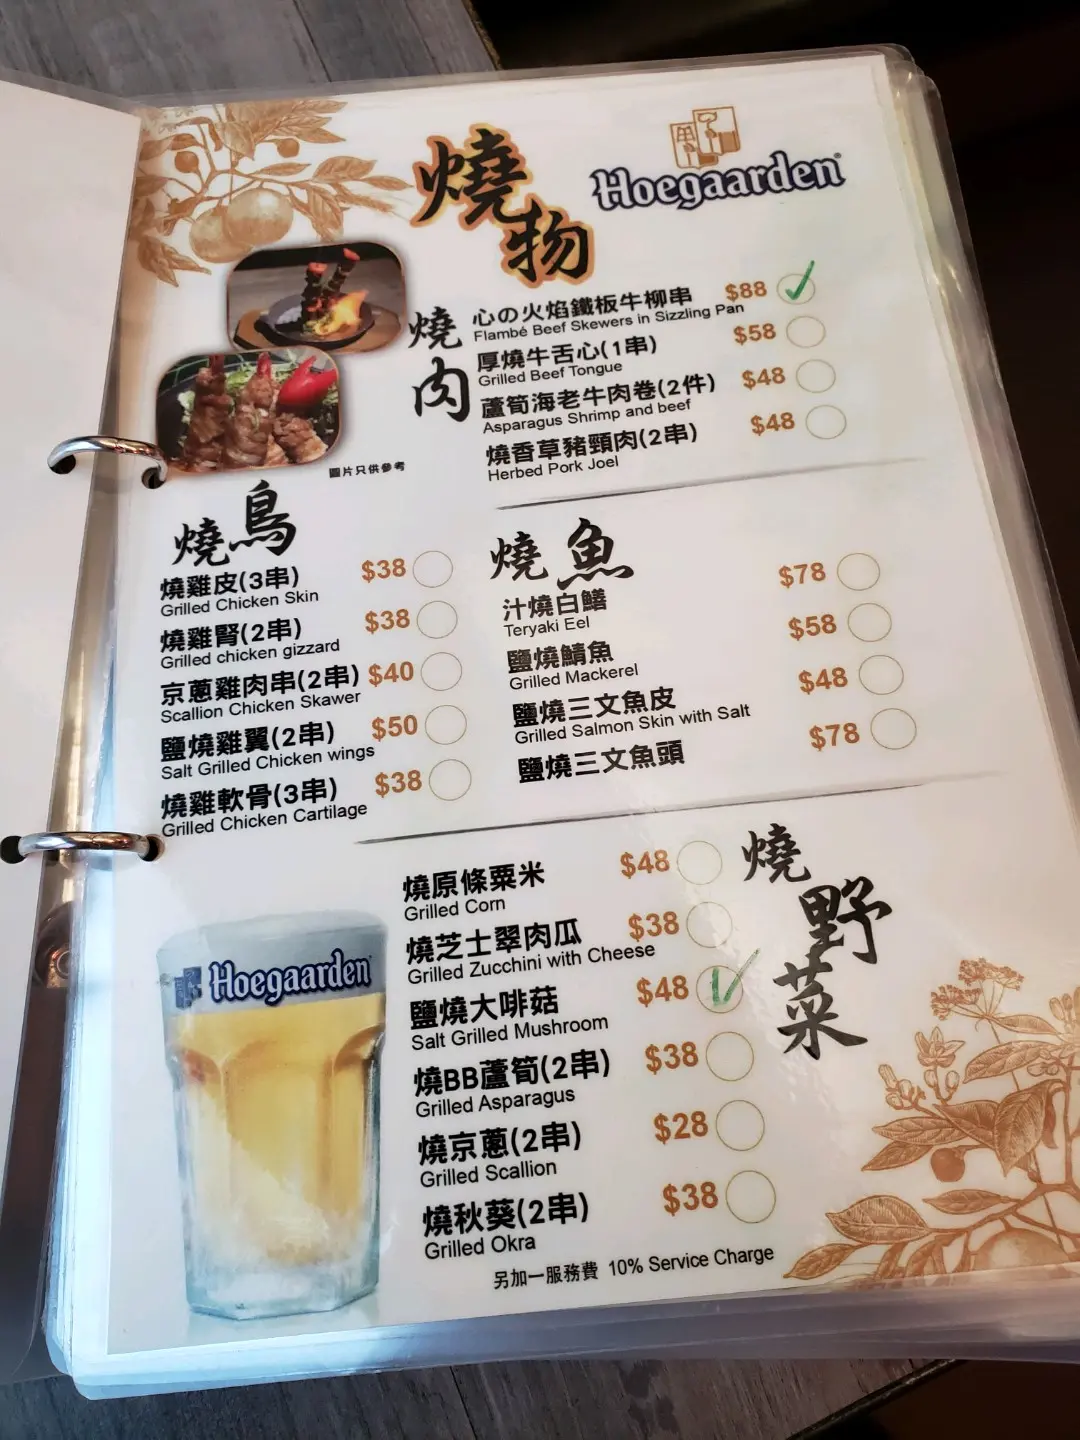 燒物
Hoegaarden
燒肉
心の火焰鐵板牛柳串 $88
Flambé Beef Skewers in Sizzling Pan
厚燒牛舌心(1串) $58
Grilled Beef Tongue
蘆筍海老牛肉卷(2件) $48
Asparagus Shrimp and beef
燒香草豬頸肉(2串) $48
Herbed Pork Joel
圖片只供參考
燒鳥
燒雞皮(3串) $38
Grilled Chicken Skin
燒雞腎(2串) $38
Grilled chicken gizzard
京蔥雞肉串(2串) $40
Scallion Chicken Skawer
鹽燒雞翼(2串) $50
Salt Grilled Chicken wings
燒雞軟骨(3串) $38
Grilled Chicken Cartilage
燒魚
汁燒白鱔 $78
Teryaki Eel
鹽燒鯖魚 $58
Grilled Mackerel
鹽燒三文魚皮 $48
Grilled Salmon Skin with Salt
鹽燒三文魚頭 $78
燒野菜
燒原條粟米 $48
Grilled Corn
燒芝士翠肉瓜 $38
Grilled Zucchini with Cheese
鹽燒大啡菇 $48
Salt Grilled Mushroom
燒BB蘆筍(2串) $38
Grilled Asparagus
燒京蔥(2串) $28
Grilled Scallion
燒秋葵(2串) $38
Grilled Okra
另加一服務費 10% Service Charge
Hoegaarden